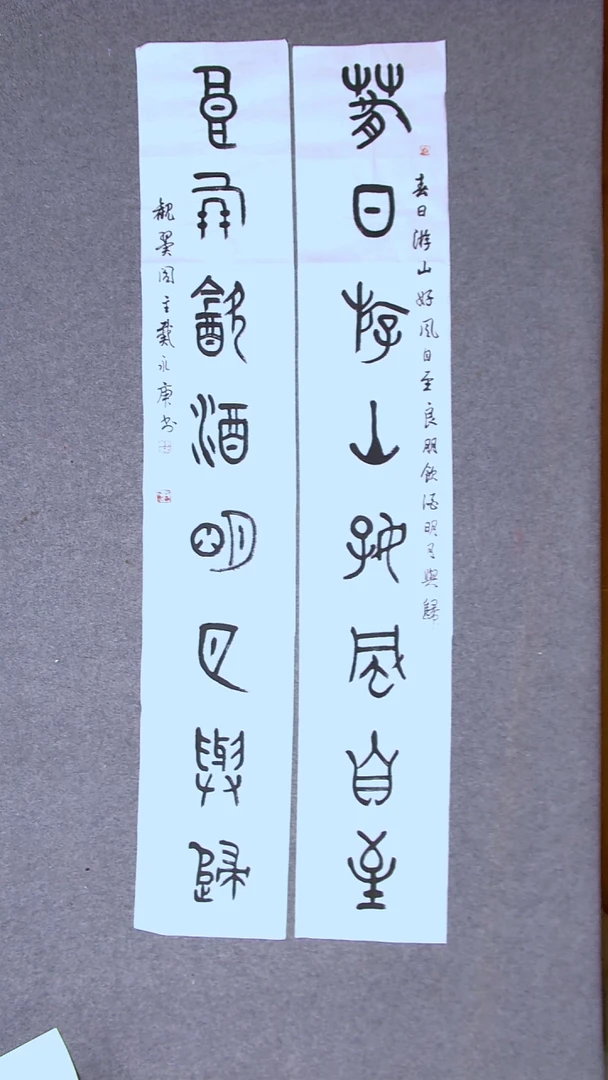 春日游山好風自至
春日游山好風自至良朋飲酒明月與歸
良朋飲酒明月與歸
觀翼閣主戴永庚书